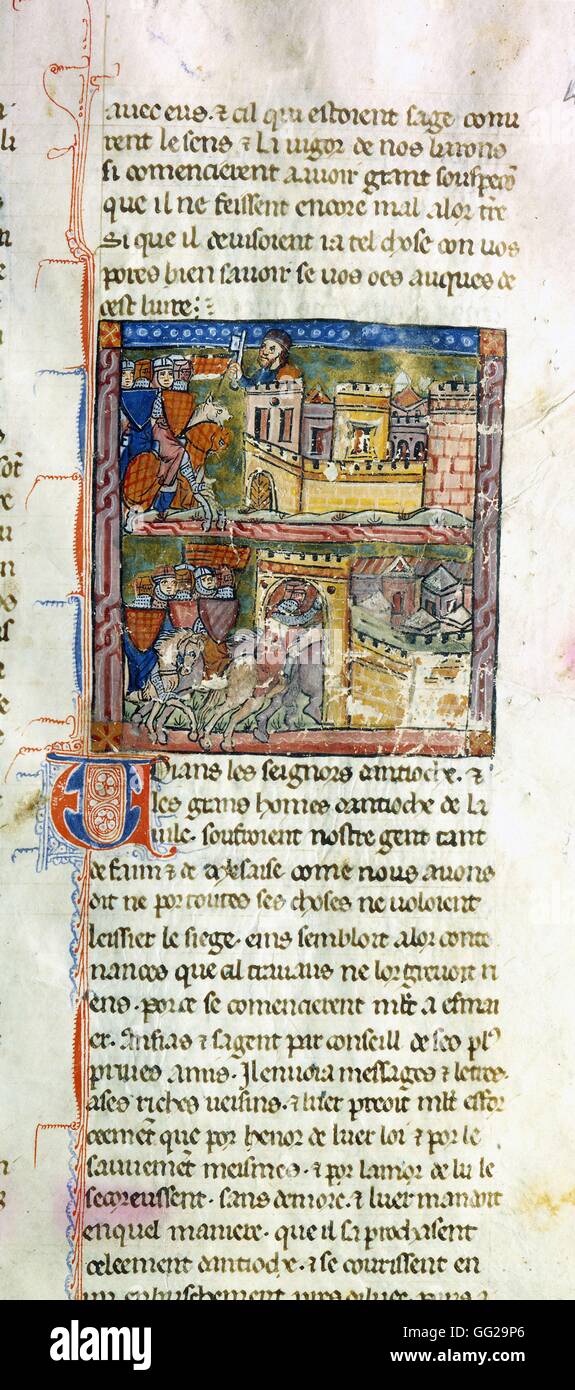 auec eus. & cil qui estoient sage conu
rent le sens & la uigor de nos barons
si comencierent a auoir grant souspeco
que il ne feissent encore mal a lor tre
Si que il deuisoient ia tel chose con uos
pores bien sauoir se uos oes auques de
cest liure:
Vians les seignors dantioche. &
les grans homes dantioche de la
uile. soufroient nostre gent tant
de faim & de mesaise come nous auons
dit ne por toutes ses choses ne uoloient
leissier le siege. eins sembloit a lor conte
nances que cil trauaus ne lor greuoit ri
ens. por ce se comencierent mlt a esmai
er. Ansias & sagent par conseill de ses pl9
priues amis. Il enuoia messages & letres
a ses riches ueisins. & lor preoit mlt esfor
ceement que por henor de luer loi & por le
sauuement meismes. & por lamor de lui le
secoreussent. sans demore. & luer mandoit
en quel maniere. que il saprochasent
celeement dantioche. & se courissent en
alamy
Image ID: GG29P6
www.alamy.com